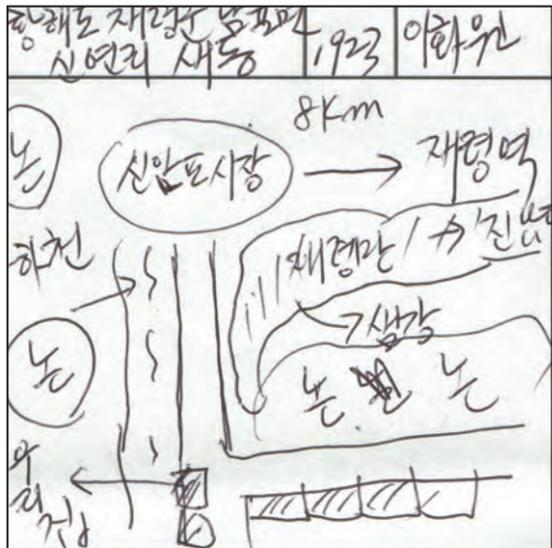 황해도 재령군 남률면
신연리 새동
1923
이화우
8Km
논
신암포시장
재령역
하천
재령강
샘강
논
논 논
우리집